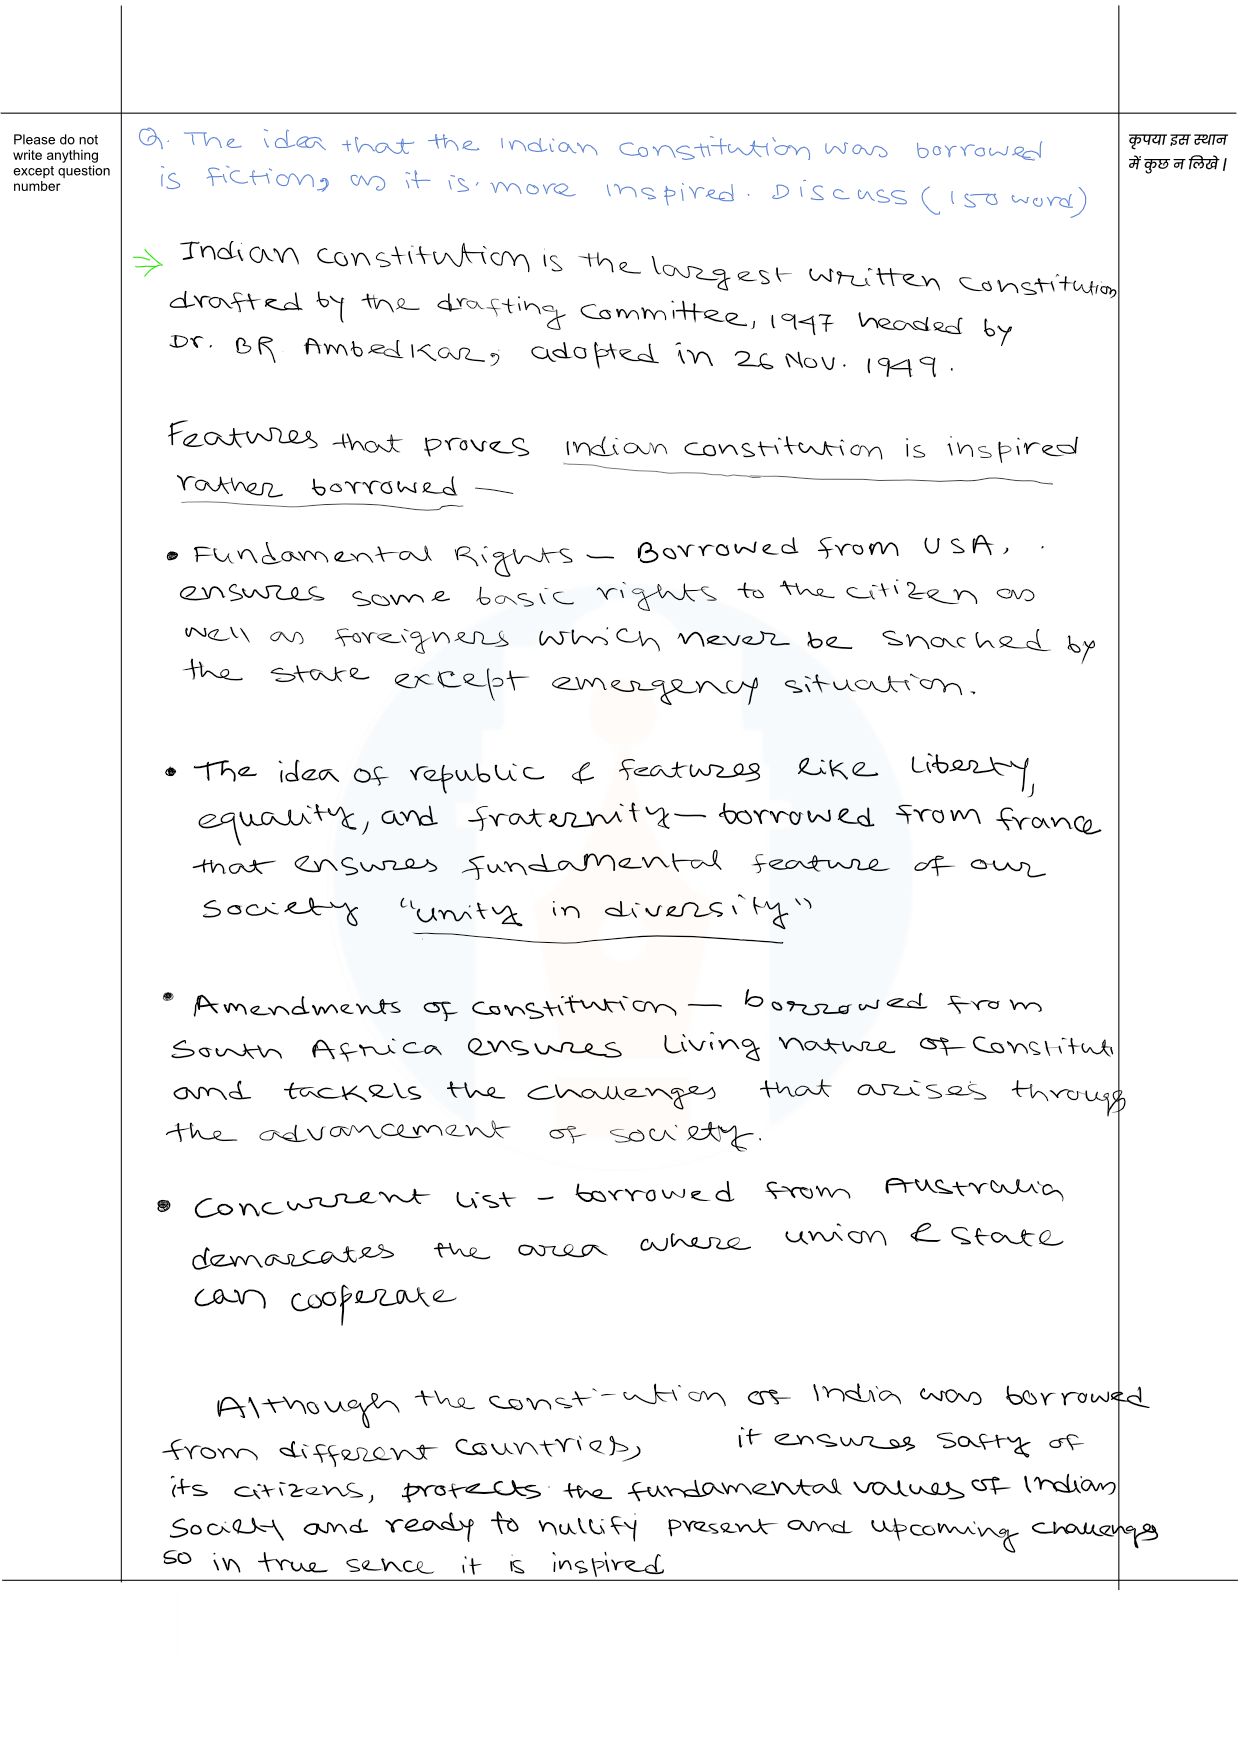 Please do not
write anything
except question
number
कृपया इस स्थान
में कुछ न लिखे |
Q. The idea that the Indian constitution was borrowed
is fiction, as it is more inspired. Discuss (150 word)
⇒ Indian constitution is the largest written constitution
drafted by the drafting committee, 1947 headed by
Dr. BR Ambedkar, adopted in 26 Nov. 1949.
Features that proves indian constitution is inspired
rather borrowed —
• Fundamental Rights — Borrowed from USA,
ensures some basic rights to the citizen as
well as foreigners which never be snached by
the state except emergency situation.
• The idea of republic & features like liberty,
equality, and fraternity — borrowed from france
that ensures fundamental feature of our
society "unity in diversity"
• Amendments of constitution — borrowed from
South Africa ensures living nature of constituti
and tackels the challenges that arises through
the advancement of society.
• Concurrent list — borrowed from Australia
demarcates the area where union & state
can cooperate
Although the constitution of India was borrowed
from different countries, it ensures safty of
its citizens, protects the fundamental values of Indian
society and ready to nullify present and upcoming challenges
so in true sence it is inspired